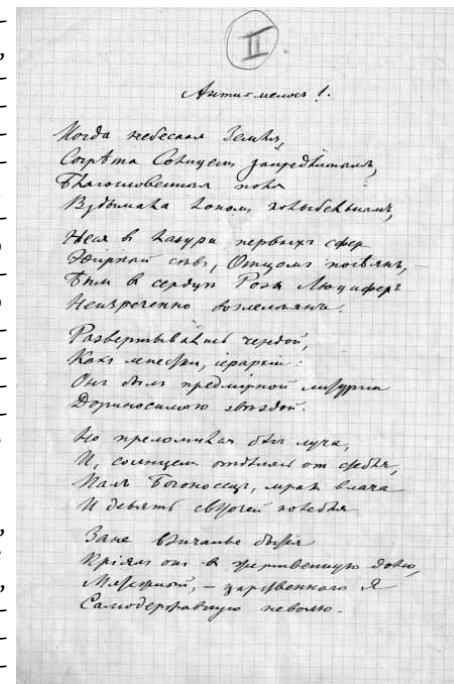 II.
Когда небесная Земля,
Согрѣта Солнцемъ запредѣльнымъ,
Благословенная
Вздымала лономъ колыбельнымъ,
Неся в лазури первыхъ сферъ
Эѳирный сѣвъ, Отцомъ посѣянъ,
Былъ в сердцѣ Розы Люциферъ
Неизреченно возлелѣянъ.
Развертывались чередой,
Какъ лепестки, іерархіи:
Онъ былъ предмірной литургіи
Дориносимою звѣздой.
Но преломилъ онъ луча,
И, солнцемъ от себя,
Палъ Богоносецъ, мракъ влача
И девять колебля
Зане вѣнчанье
Пріялъ онъ в жертвенную долю,
– царственнаго Я
Самодержавную неволю.